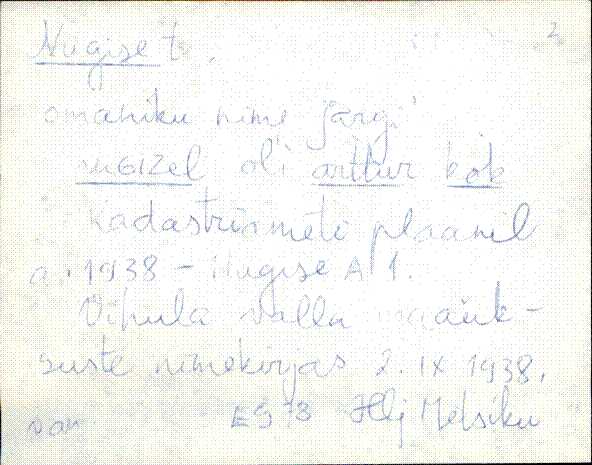 2
Nugise t.
omaniku nime järgi
nuGIZel oli arttur kok
Kadastriameti plaanil
a. 1938 - Nugise A 1.
Vihula valla maaük-
suste nimekirjas 2. IX 1938.
E 973 Hlj Metsiku